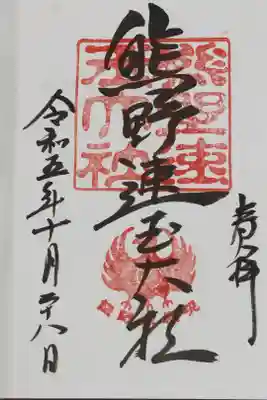 奉拝
熊野速玉大社
熊野速
玉大社
令和五年十月二十八日